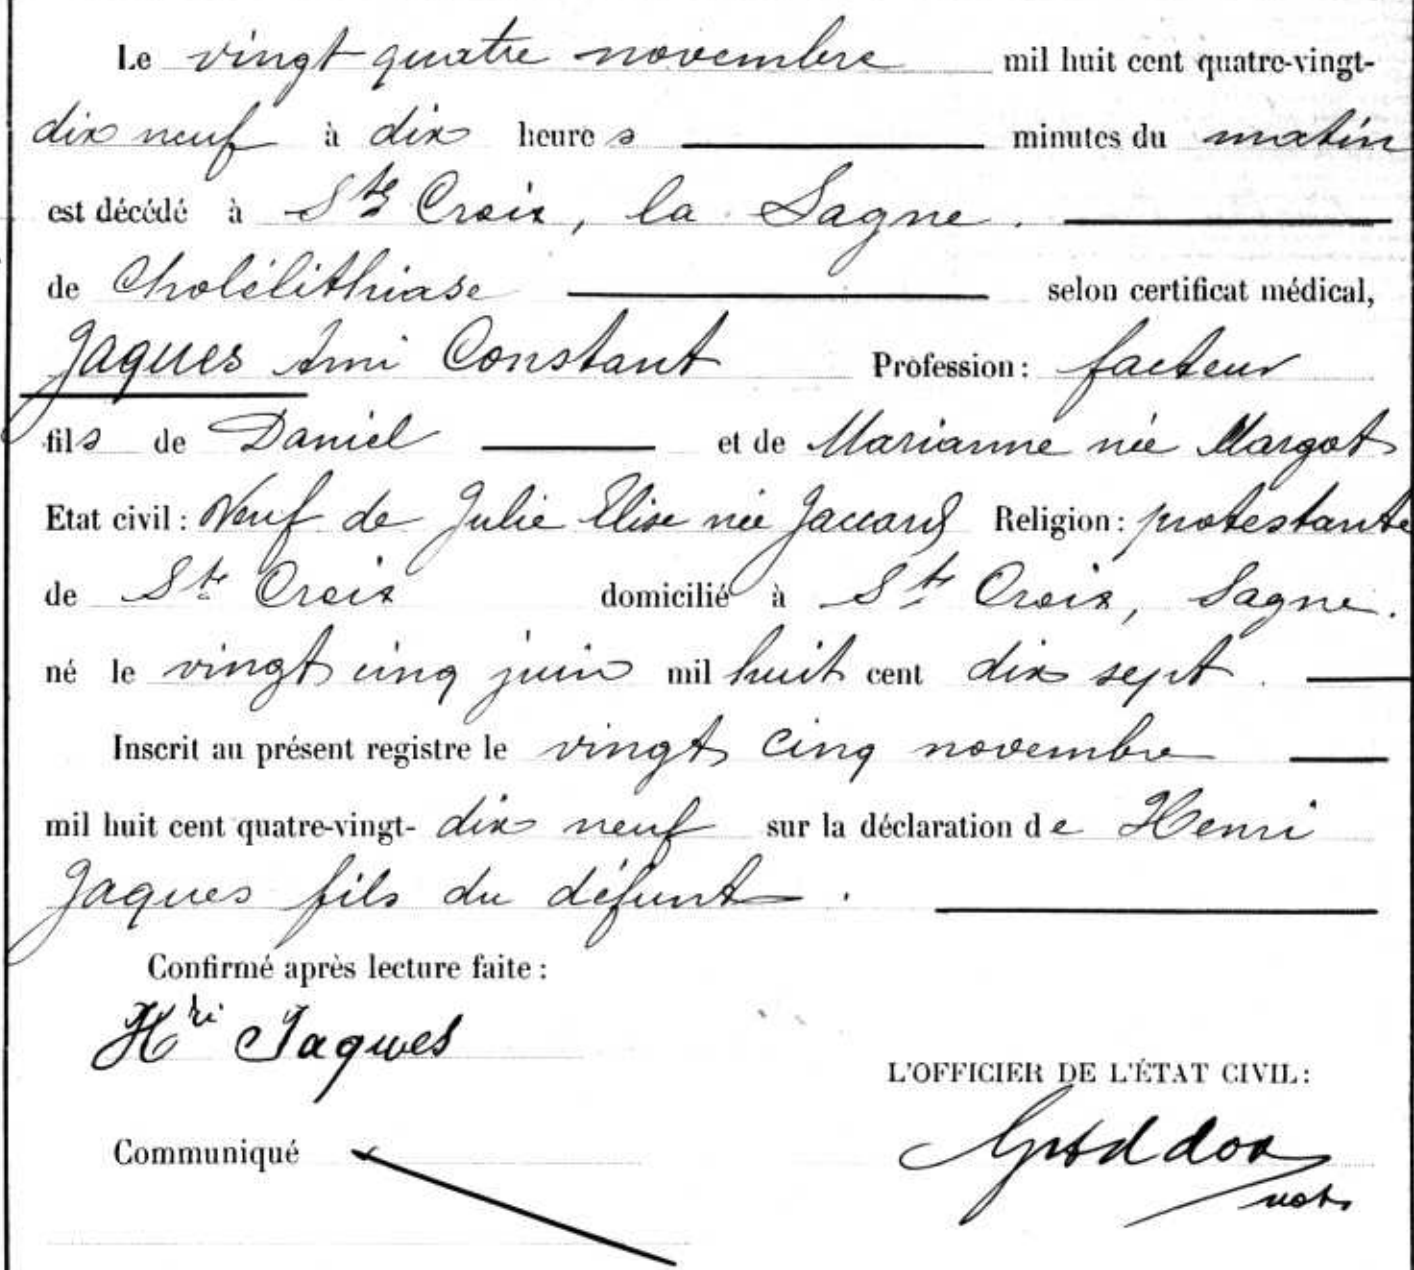 Le vingt quatre novembre mil huit cent quatre-vingt-
dix neuf à dix heures minutes du matin
est décédé à Ste Croix, la Sagne.
de Cholélithiase selon certificat médical,
Jaques Ami Constant Profession: facteur
fils de Daniel et de Marianne née Margot
Etat civil: Veuf de Julie Elise née Jaccard Religion: protestante
de Ste Croix domicilié à Ste Croix, Sagne.
né le vingt cinq juin mil huit cent dix sept.
Inscrit au présent registre le vingt cinq novembre
mil huit cent quatre-vingt- dix neuf sur la déclaration de Henri
Jaques fils du défunt.
Confirmé après lecture faite:
Hri Jaques
L'OFFICIER DE L'ÉTAT CIVIL:
Communiqué